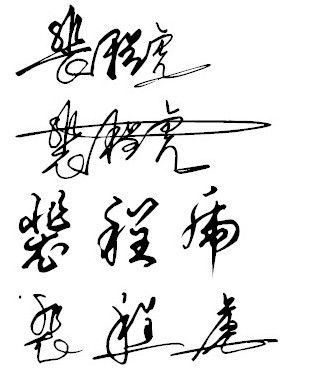 裴程虎
裴程虎
裴程虎
裴程虎